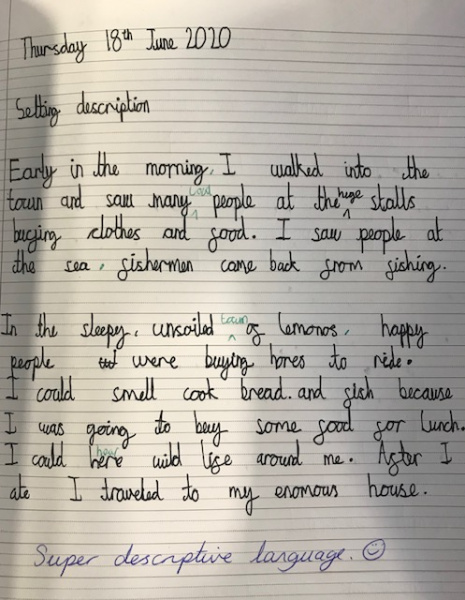 Thursday 18th June 2020
Setting description
Early in the morning, I walked into the
town and saw many local people at the huge stalls
buying clothes and food. I saw people at
the sea, fishermen came back from fishing.
In the sleepy, unsoiled town of Lemonos, happy
people were buying hores to ride.
I could smell cook bread. and fish because
I was going to buy some food for lunch.
I could hear here wild life around me. After I
ate I traveled to my enomous house.
Super descriptive language. ☺